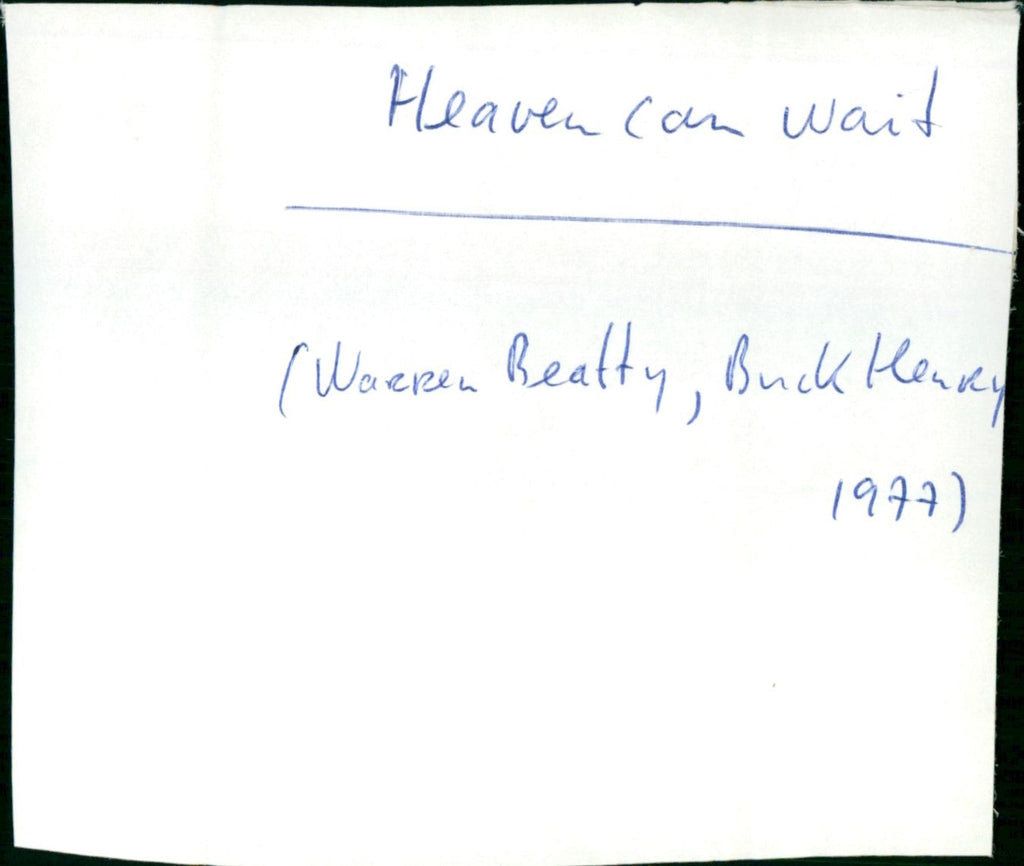 Heaven can wait
(Warren Beatty, Buck Henry
1977)